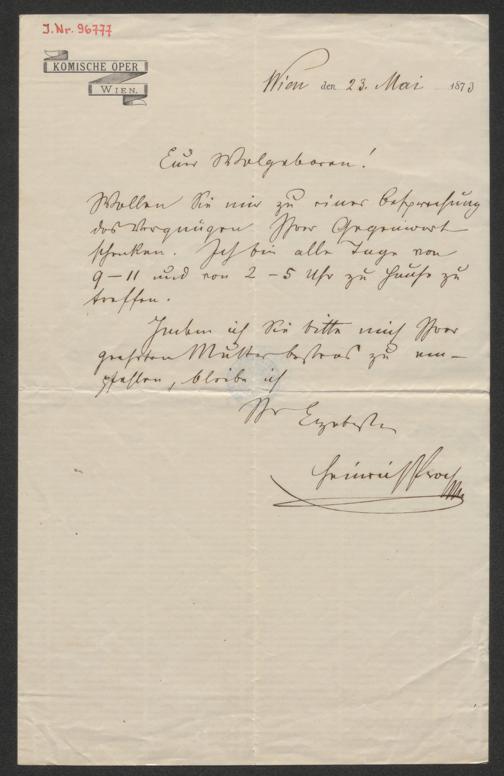 I.Nr. 96777
KOMISCHE OPER
WIEN.
Wien den 23. Mai 1873
Euer Wolgeboren!
Wollen Sie mir zu einer Besprechung
das Vergnügen Ihrer Gegenwart
schenken. Ich bin alle Tage von
9–11 und von 2–5 Uhr zu Hause zu
treffen.
Indem ich Sie bitte mich Ihrer
geehrten Mutter bestens zu em-
pfehlen, bleibe ich
Ihr Ergebenster
Heinrich Proch